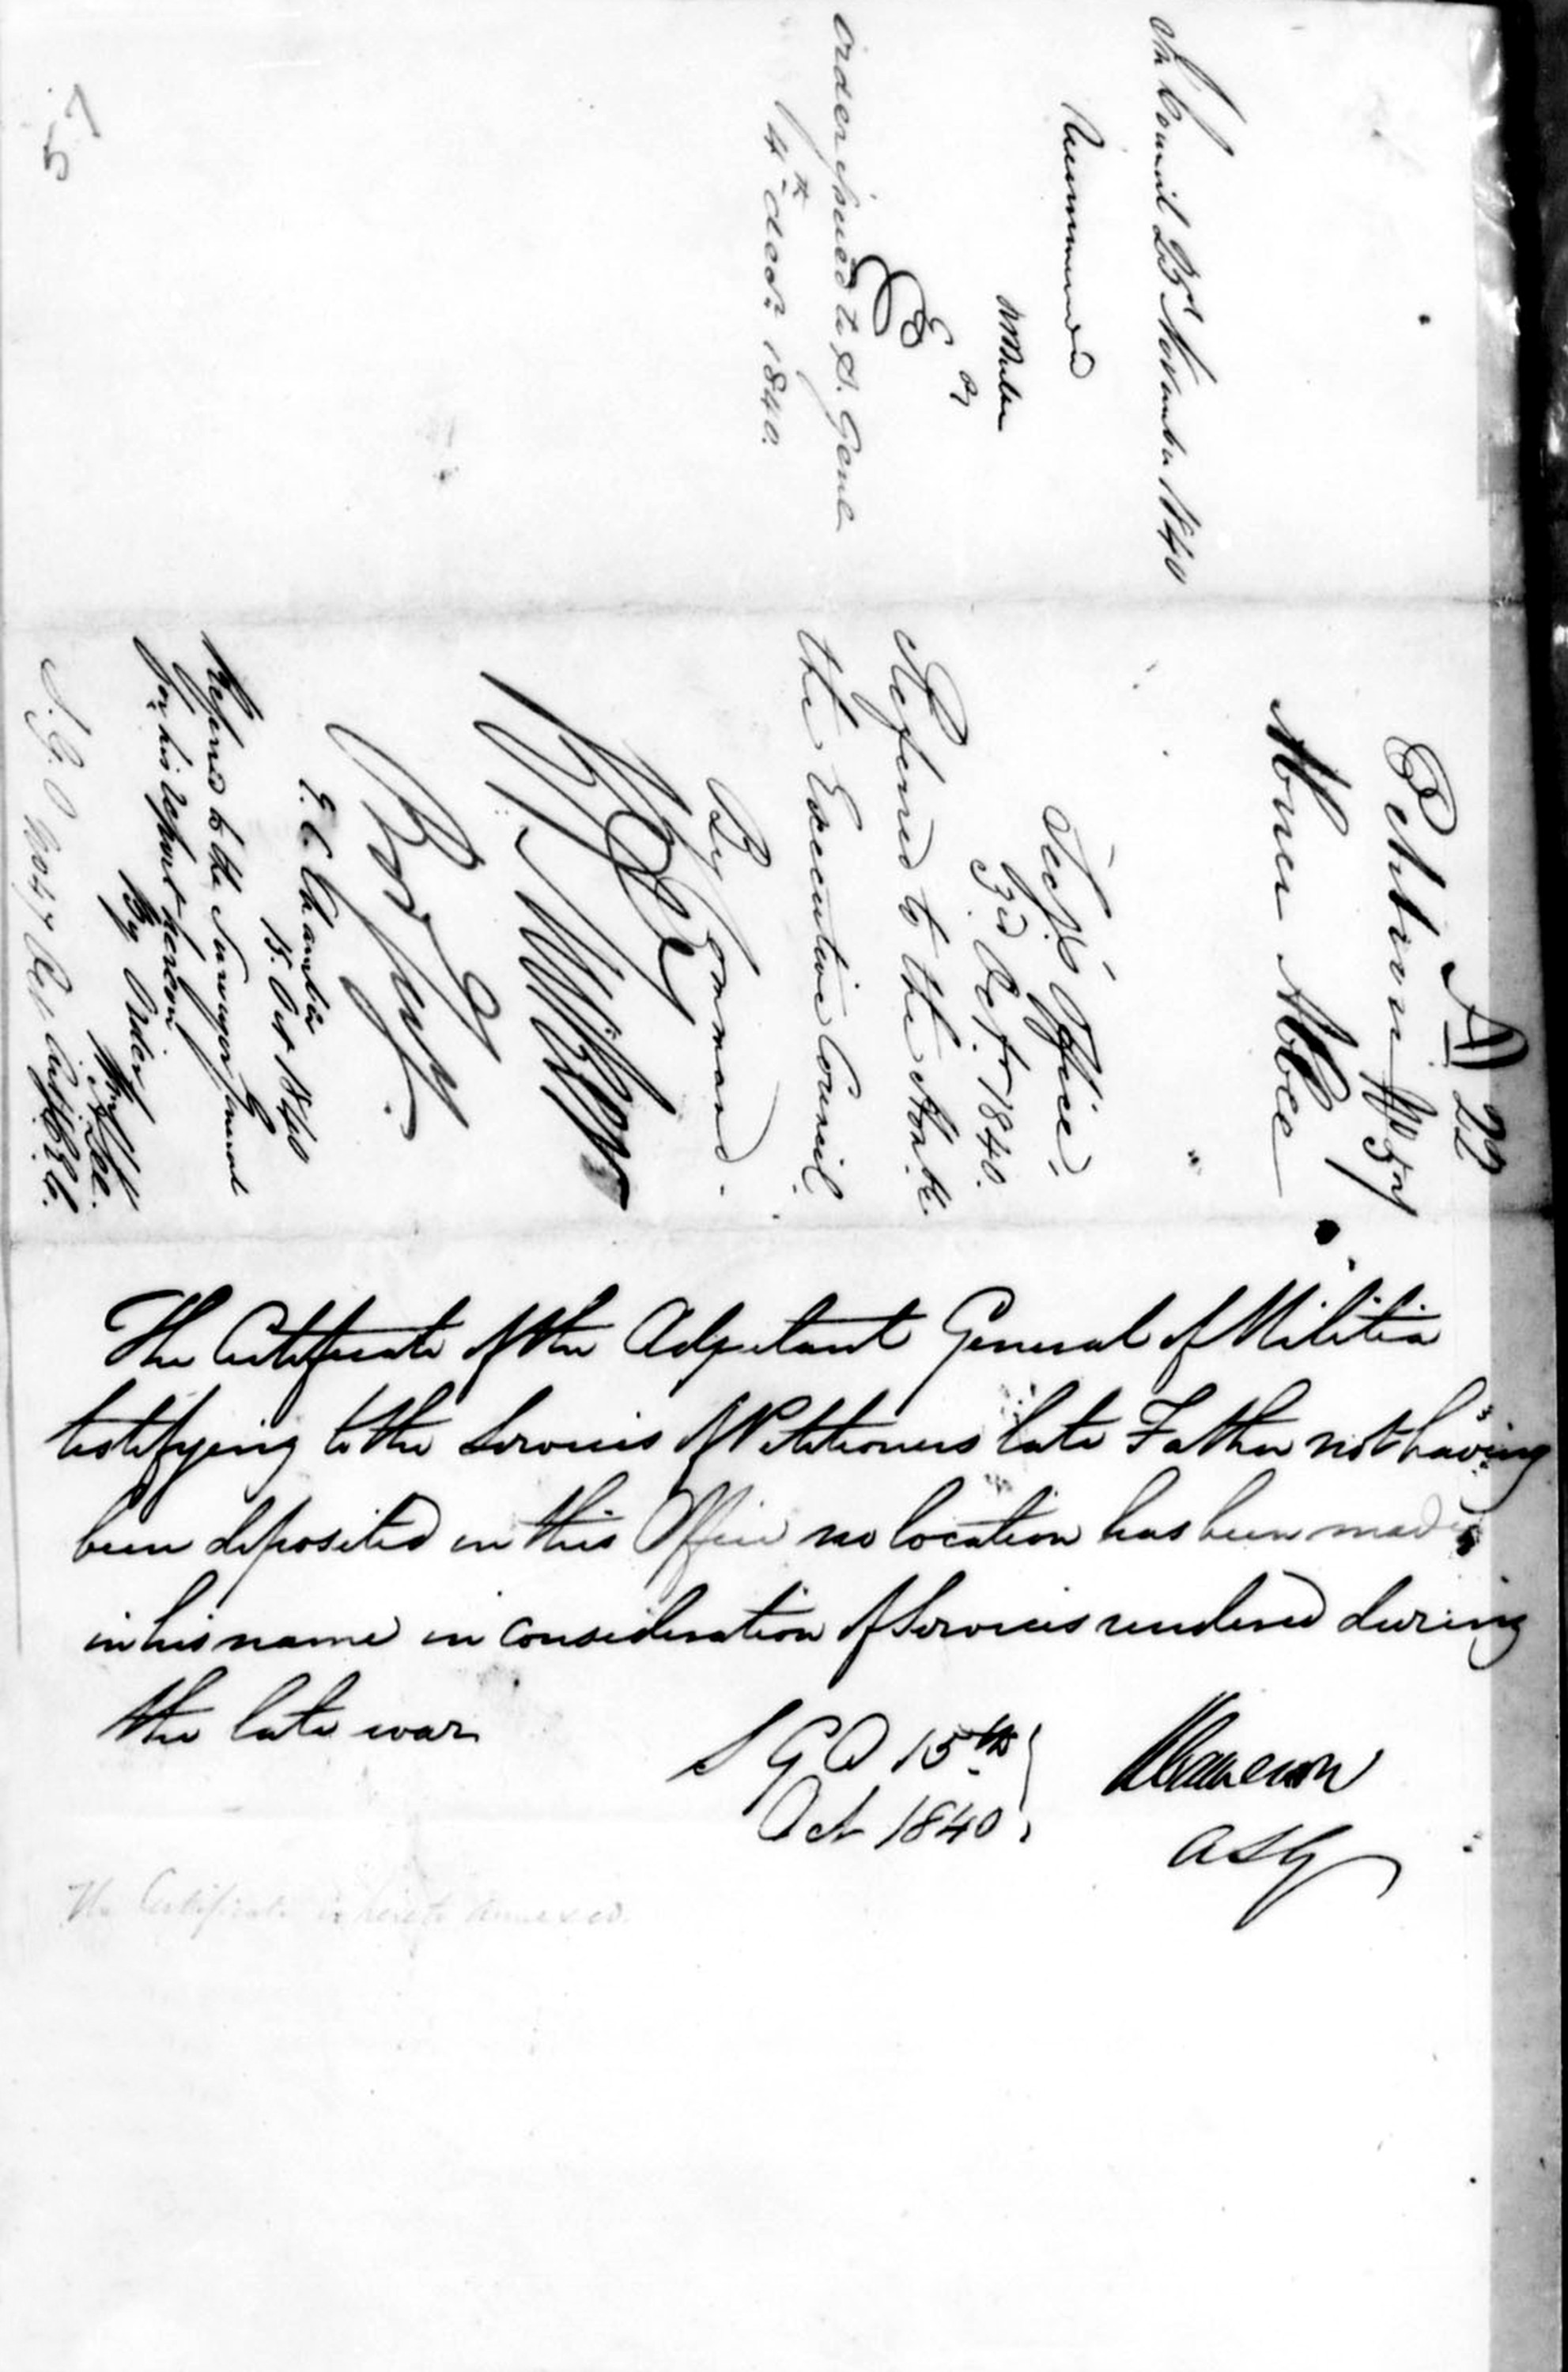 57
In Council 25th November 1840
Recommended
Order issued to S. Genl
4th decr. 1840.
A 22
Petition No 57
Abner
Secy's Office
3d Octr 1840.
Referred to the Honble.
the Executive Council
By Command.
E. C. Chamber
15. Oct 1840
Referred to the Surveyor General
for his report hereon
By Order
The Certificate of the Adjutant General of Militia
testifying to the Services of Petitioners late Father not having
been deposited in this Office no location has been made
in his name in consideration of Services rendered during
the late war
S G O 15th
Oct 1840
ASG
The Certificate is hereto annexed.